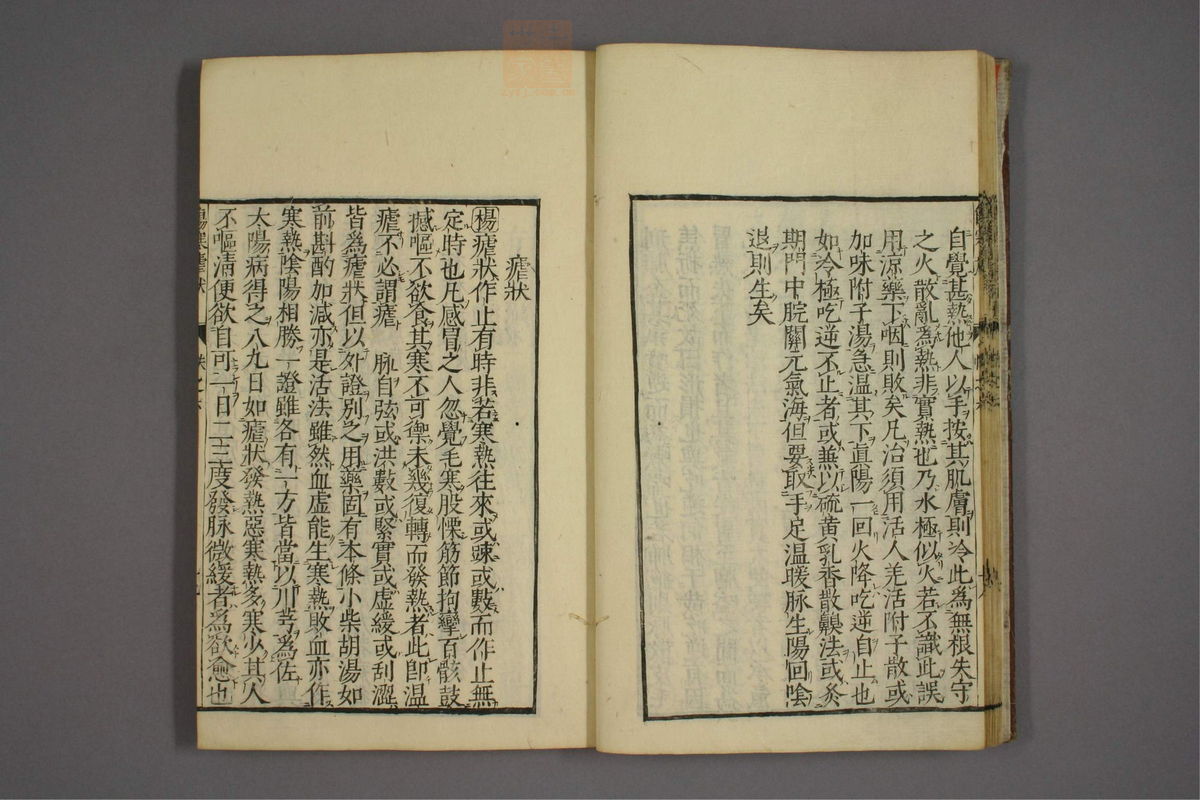 自覺甚熱他人以手按其肌膚則冷此爲無根失守
之火散亂爲熱非實熱也乃水極似火若不識此誤
用涼藥下咽則敗矣凡治須用活人羌活附子散或
加味附子湯急溫其下眞陽一回火降吃逆自止也
如冷極吃逆不止者或兼以硫黄乳香散齅法或灸
期門中脘關元氣海但要取手足温暖脉生陽回陰
退則生矣
瘧狀
楊瘧狀作止有時非若寒熱往來或疎或數而作止無
定時也凡感冒之人忽覺毛寒股慄筋節拘攣百骸鼓
撼嘔不欲食其寒不可禦未幾復轉而發熱者此即温
瘧不必謂瘧 脉自弦或洪數或緊實或虚緩或刮澀
皆爲瘧狀但以外證別之用藥固有本條小柴胡湯如
前斟酌加減亦是活法雖然血虚能生寒熱敗血亦作
寒熱陰陽相勝一證雖各有一方皆當以川芎爲佐
太陽病得之八九日如瘧狀發熱惡寒熱多寒少其人
不嘔清便欲自可一日二三度發脉微緩者爲欲愈也